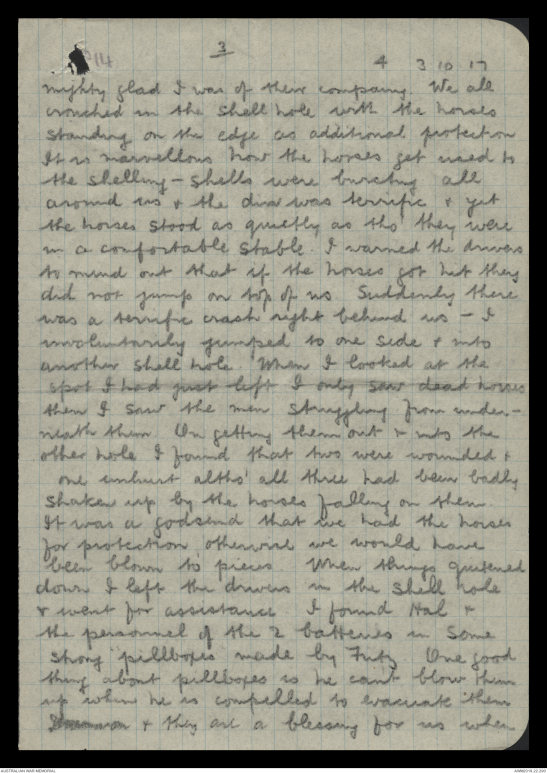 3
14
4 3 10 17
mighty glad I was of their company. We all
crouched in the shell hole with the horses
standing on the edge as additional protection
It is marvellous how the horses get used to
the shelling – shells were bursting all
around us & the din was terrific & yet
the horses stood as quietly as tho' they were
in a comfortable stable. I warned the drivers
to mind out that if the horses got hit they
did not jump on top of us. Suddenly there
was a terrific crash right behind us – I
involuntarily jumped to one side & into
another shell hole. When I looked at the
spot I had just left I only saw dead horses
then I saw the men struggling from under-
neath them. On getting them out & into the
other hole I found that two were wounded &
one unhurt altho' all three had been badly
shaken up by the horses falling on them.
It was a godsend that we had the horses
for protection otherwise we would have
been blown to pieces. When things quietened
down I left the drivers in the shell hole
& went for assistance I found Hal &
the personnel of the 2 batteries in some
strong pillboxes made by Fritz One good
thing about pillboxes is he can't blow them
up when he is compelled to evacuate them
& they are a blessing for us when
AUSTRALIAN WAR MEMORIAL